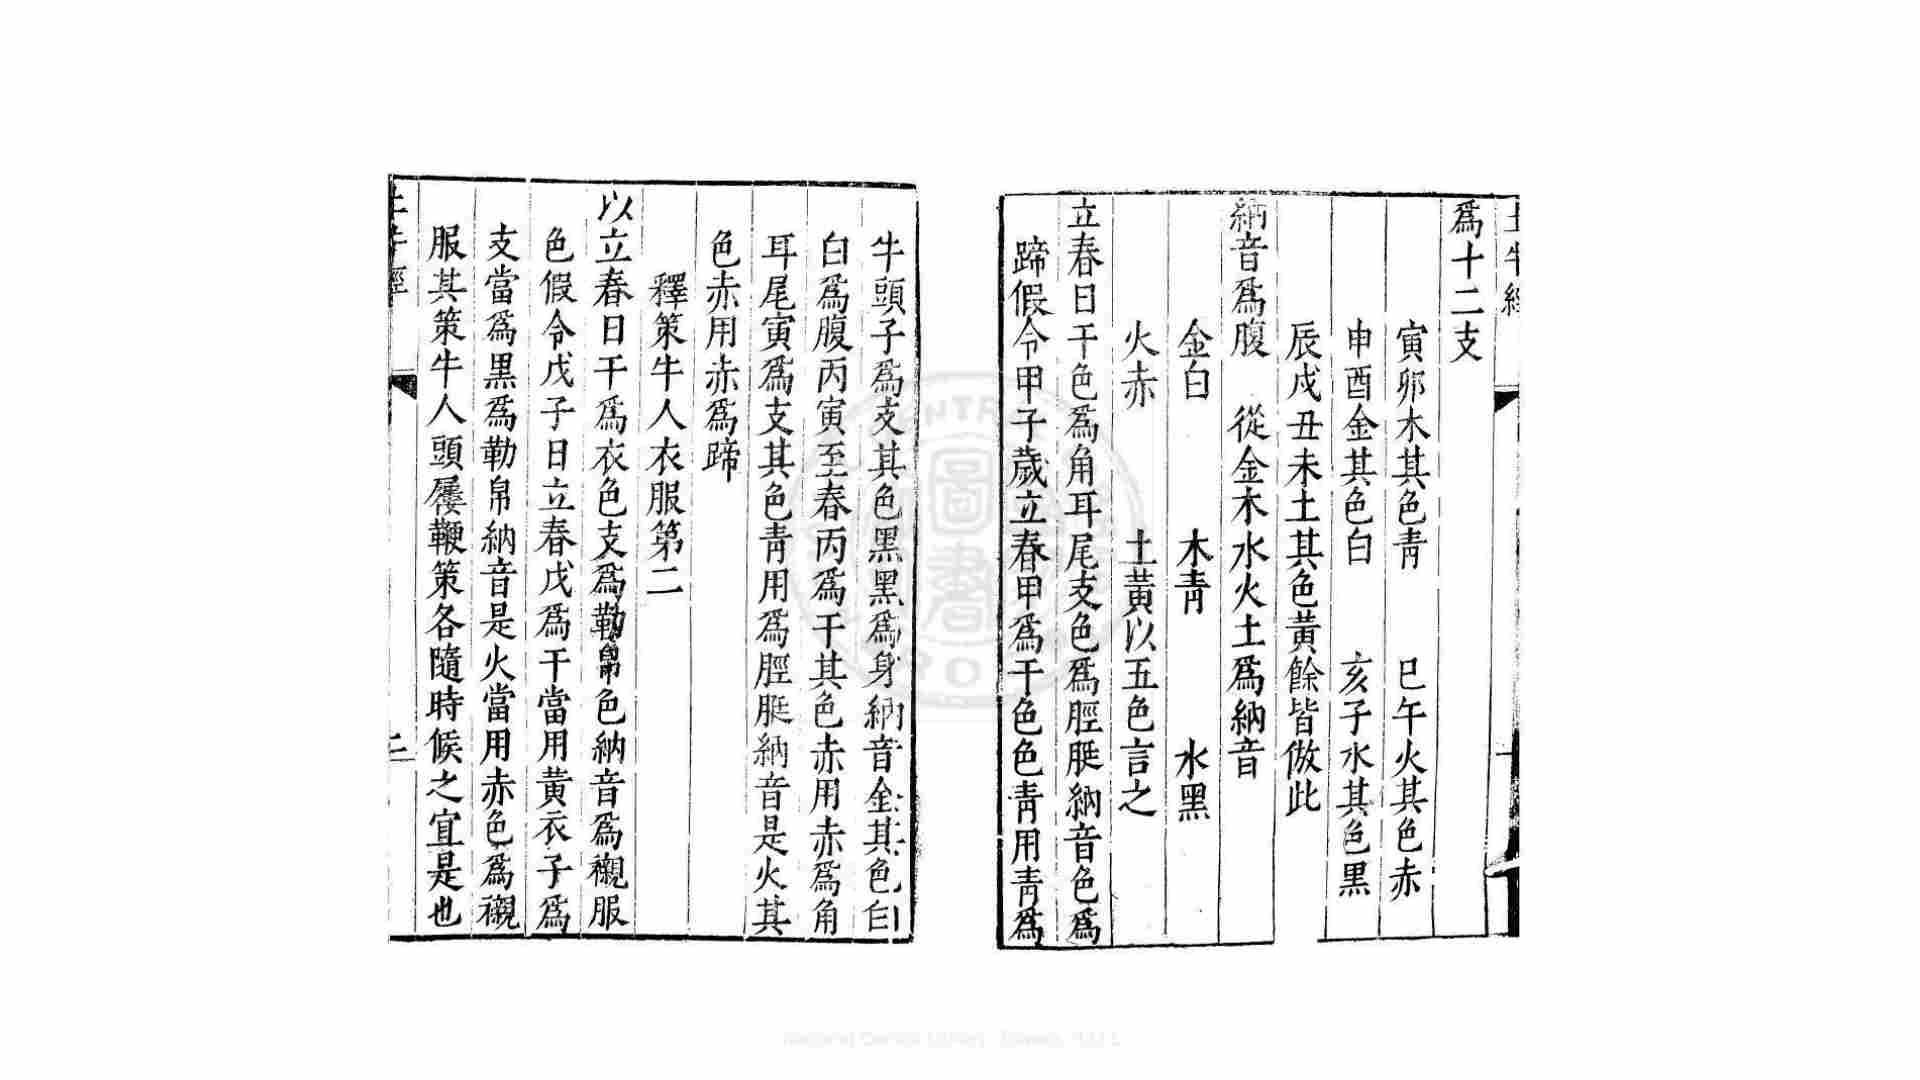 土牛經
爲十二支
寅卯木其色青 巳午火其色赤
申酉金其色白 亥子水其色黑
辰戌丑未土其色黃餘皆倣此
納音爲腹 從金木水火土爲納音
金白 木青 水黑
火赤 土黃以五色言之
立春日干色爲角耳尾支色爲脛脡納音色爲
蹄假令甲子歲立春甲爲干色色青用青爲
牛頭子爲支其色黑黑爲身納音金其色白
白爲腹丙寅至春丙爲干其色赤用赤爲角
耳尾寅爲支其色青用爲脛脡納音是火其
色赤用赤爲蹄
釋策牛人衣服第二
以立春日干爲衣色支爲勒帛色納音爲襯服
色假令戊子日立春戊爲干當用黃衣子爲
支當爲黑爲勒帛納音是火當用赤色爲襯
服其策牛人頭屨鞭策各隨時候之宜是也
土牛經 二
圖書